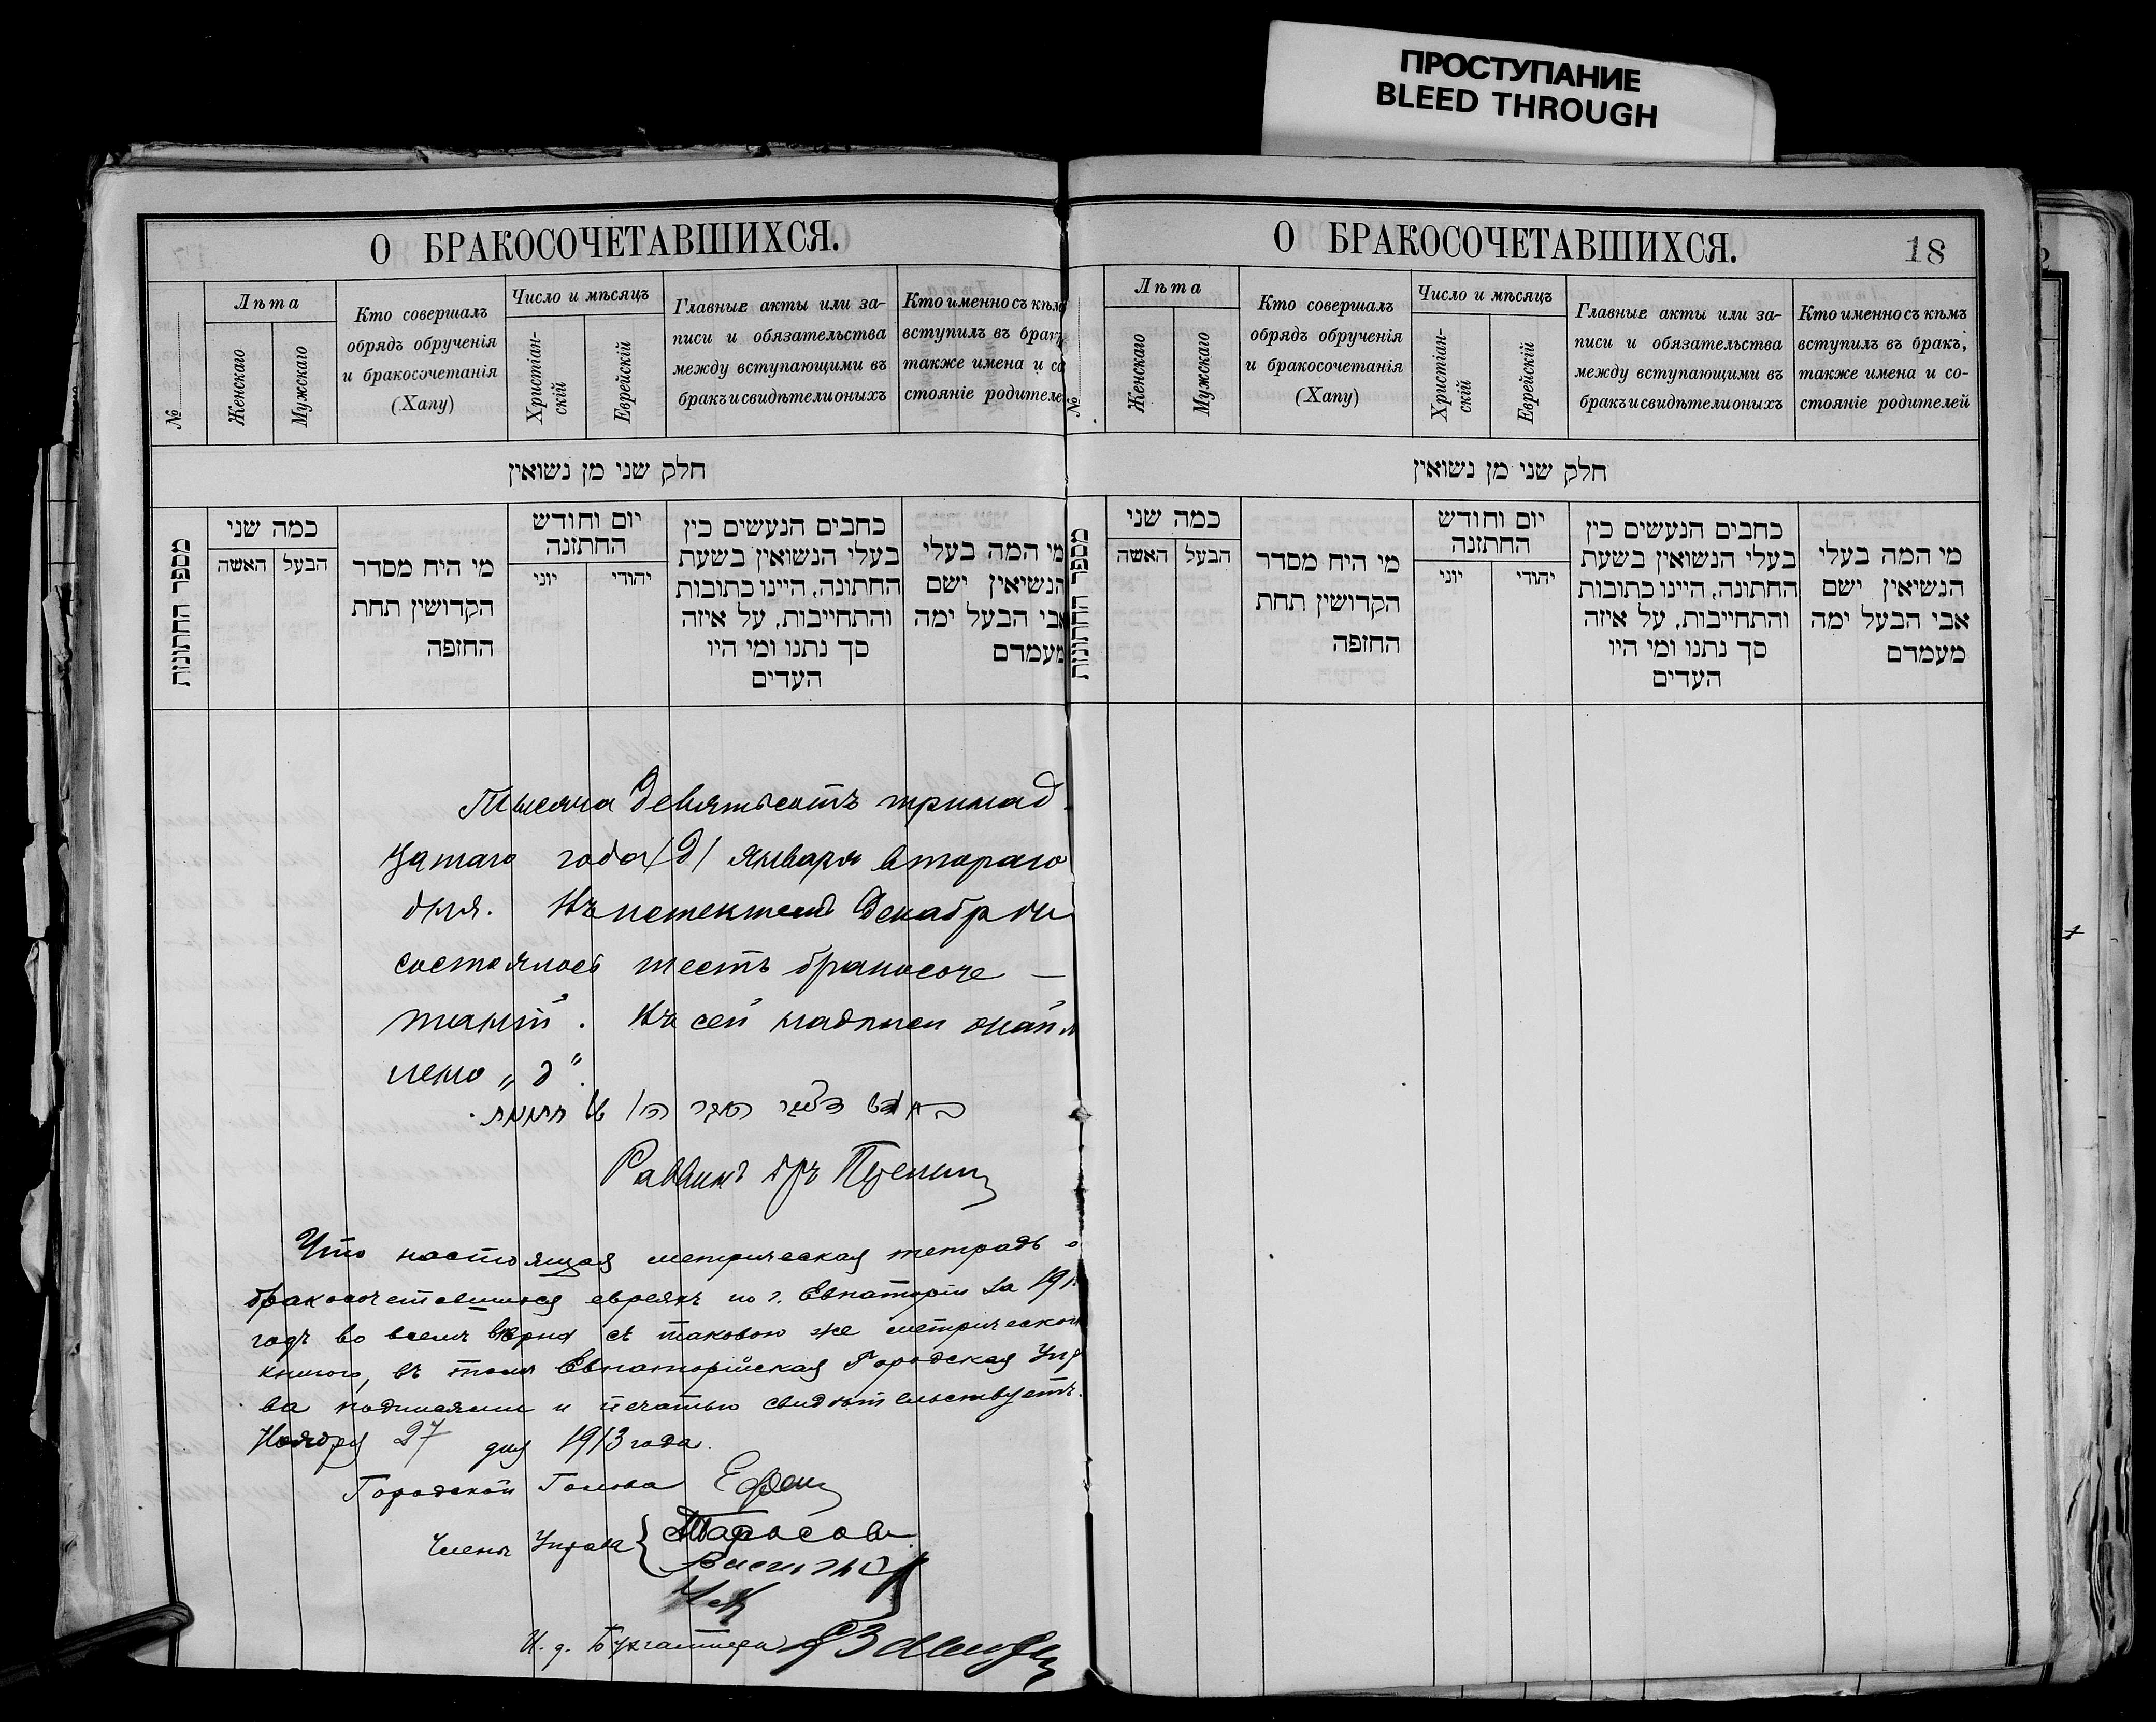 ПРОСТУПАНИЕ
BLEED THROUGH
О БРАКОСОЧЕТАВШИХСЯ.
№
Лѣта
Женскаго
Мужскаго
Кто совершалъ
обрядъ обрученія
и бракосочетанія
(Хапу)
Число и мѣсяцъ
Христіан-
скій
Еврейскій
Главные акты или за-
писи и обязательства
между вступающими въ
бракъ и свидѣтели оныхъ
Кто именно съ кѣмъ
вступилъ въ бракъ
также имена и со
стояніе родителе
חלק שני מן נשואין
מספר החתונות
כמה שני
האשה
הבעל
מי היח מסדר
הקדושין תחת
החזפה
יום וחודש
החתזנה
יוני
יהודי
כחבים הנעשים כין
בעלי הנשואין בשעת
החתונה, היינו כתובות
והתחייבות, על איזה
סך נתנו ומי היו
העדים
מי המה בעלי
הנשיאין ישם
אבי הבעל ימה
מעמדם
Тысяча девятьсотъ тринад-
цатаго года /д/ января втораго
дня. Въ истекшемъ Декабрѣ
состоялось шесть бракосоче-
таній. Въ сей надписи
„д“.
Раввинъ
Что настоящая метрическая тетрадь о
бракосочетавшихся евреяхъ по г. Евпаторіи за 191
годъ во всемъ вѣрна съ таковою же метрической
книгою, въ томъ Евпаторійская Городская Упр
ва подписями и печатью свидѣтельствуетъ.
Ноября 27 дня 1913 года.
Городской Голова
Члены Управы
И. д. Бухгалтера
О БРАКОСОЧЕТАВШИХСЯ.
18
№
Лѣта
Женскаго
Мужскаго
Кто совершалъ
обрядъ обрученія
и бракосочетанія
(Хапу)
Число и мѣсяцъ
Христіан-
скій
Еврейскій
Главные акты или за-
писи и обязательства
между вступающими въ
бракъ и свидѣтели оныхъ
Кто именно съ кѣмъ
вступилъ въ бракъ,
также имена и со-
стояніе родителей
חלק שני מן נשואין
מספר החתונות
כמה שני
האשה
הבעל
מי היח מסדר
הקדושין תחת
החזפה
יום וחודש
החתזנה
יוני
יהודי
כחבים הנעשים כין
בעלי הנשואין בשעת
החתונה, היינו כתובות
והתחייבות, על איזה
סך נתנו ומי היו
העדים
מי המה בעלי
הנשיאין ישם
אבי הבעל ימה
מעמדם